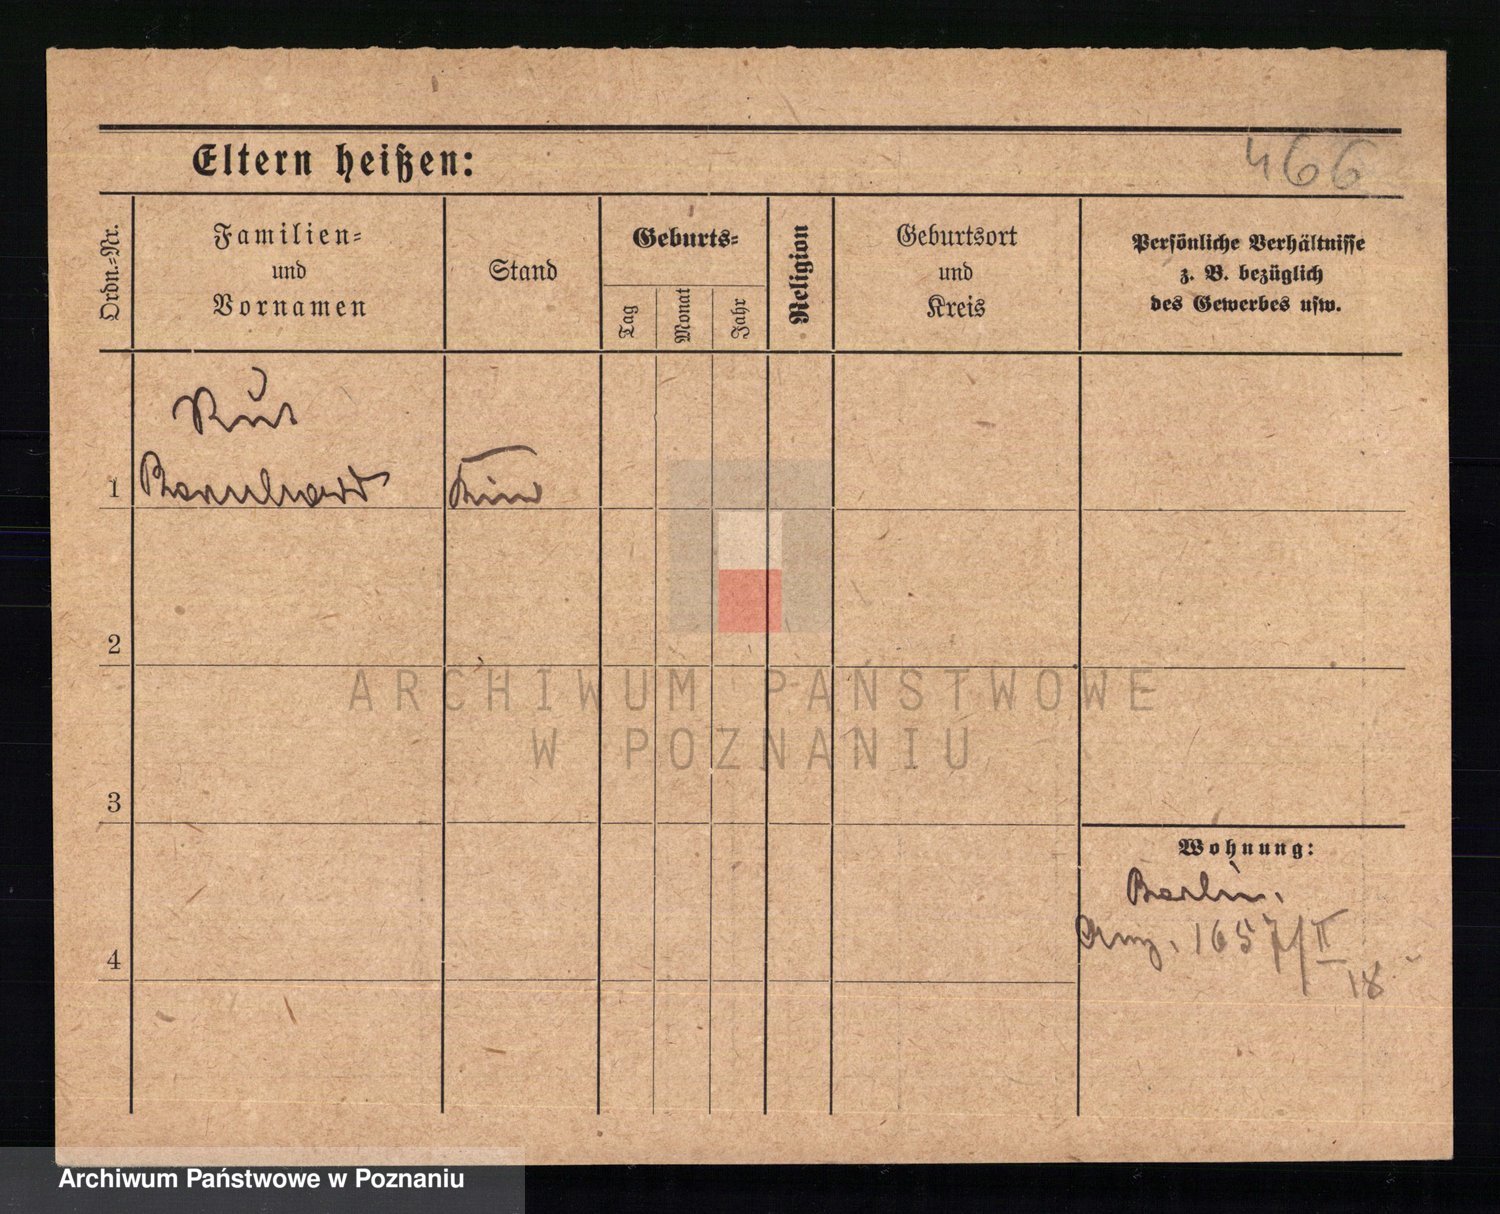 Eltern heißen:
466
Ordn.-Nr.
Familien-
und
Vornamen
Stand
Geburts-
Tag
Monat
Jahr
Religion
Geburtsort
und
Kreis
Persönliche Verhältnisse
z. B. bezüglich
des Gewerbes usw.
1
Bernhard
Kind
2
3
4
Wohnung:
Berlin.
1657/II
18
ARCHIWUM PAŃSTWOWE
W POZNANIU
Archiwum Państwowe w Poznaniu